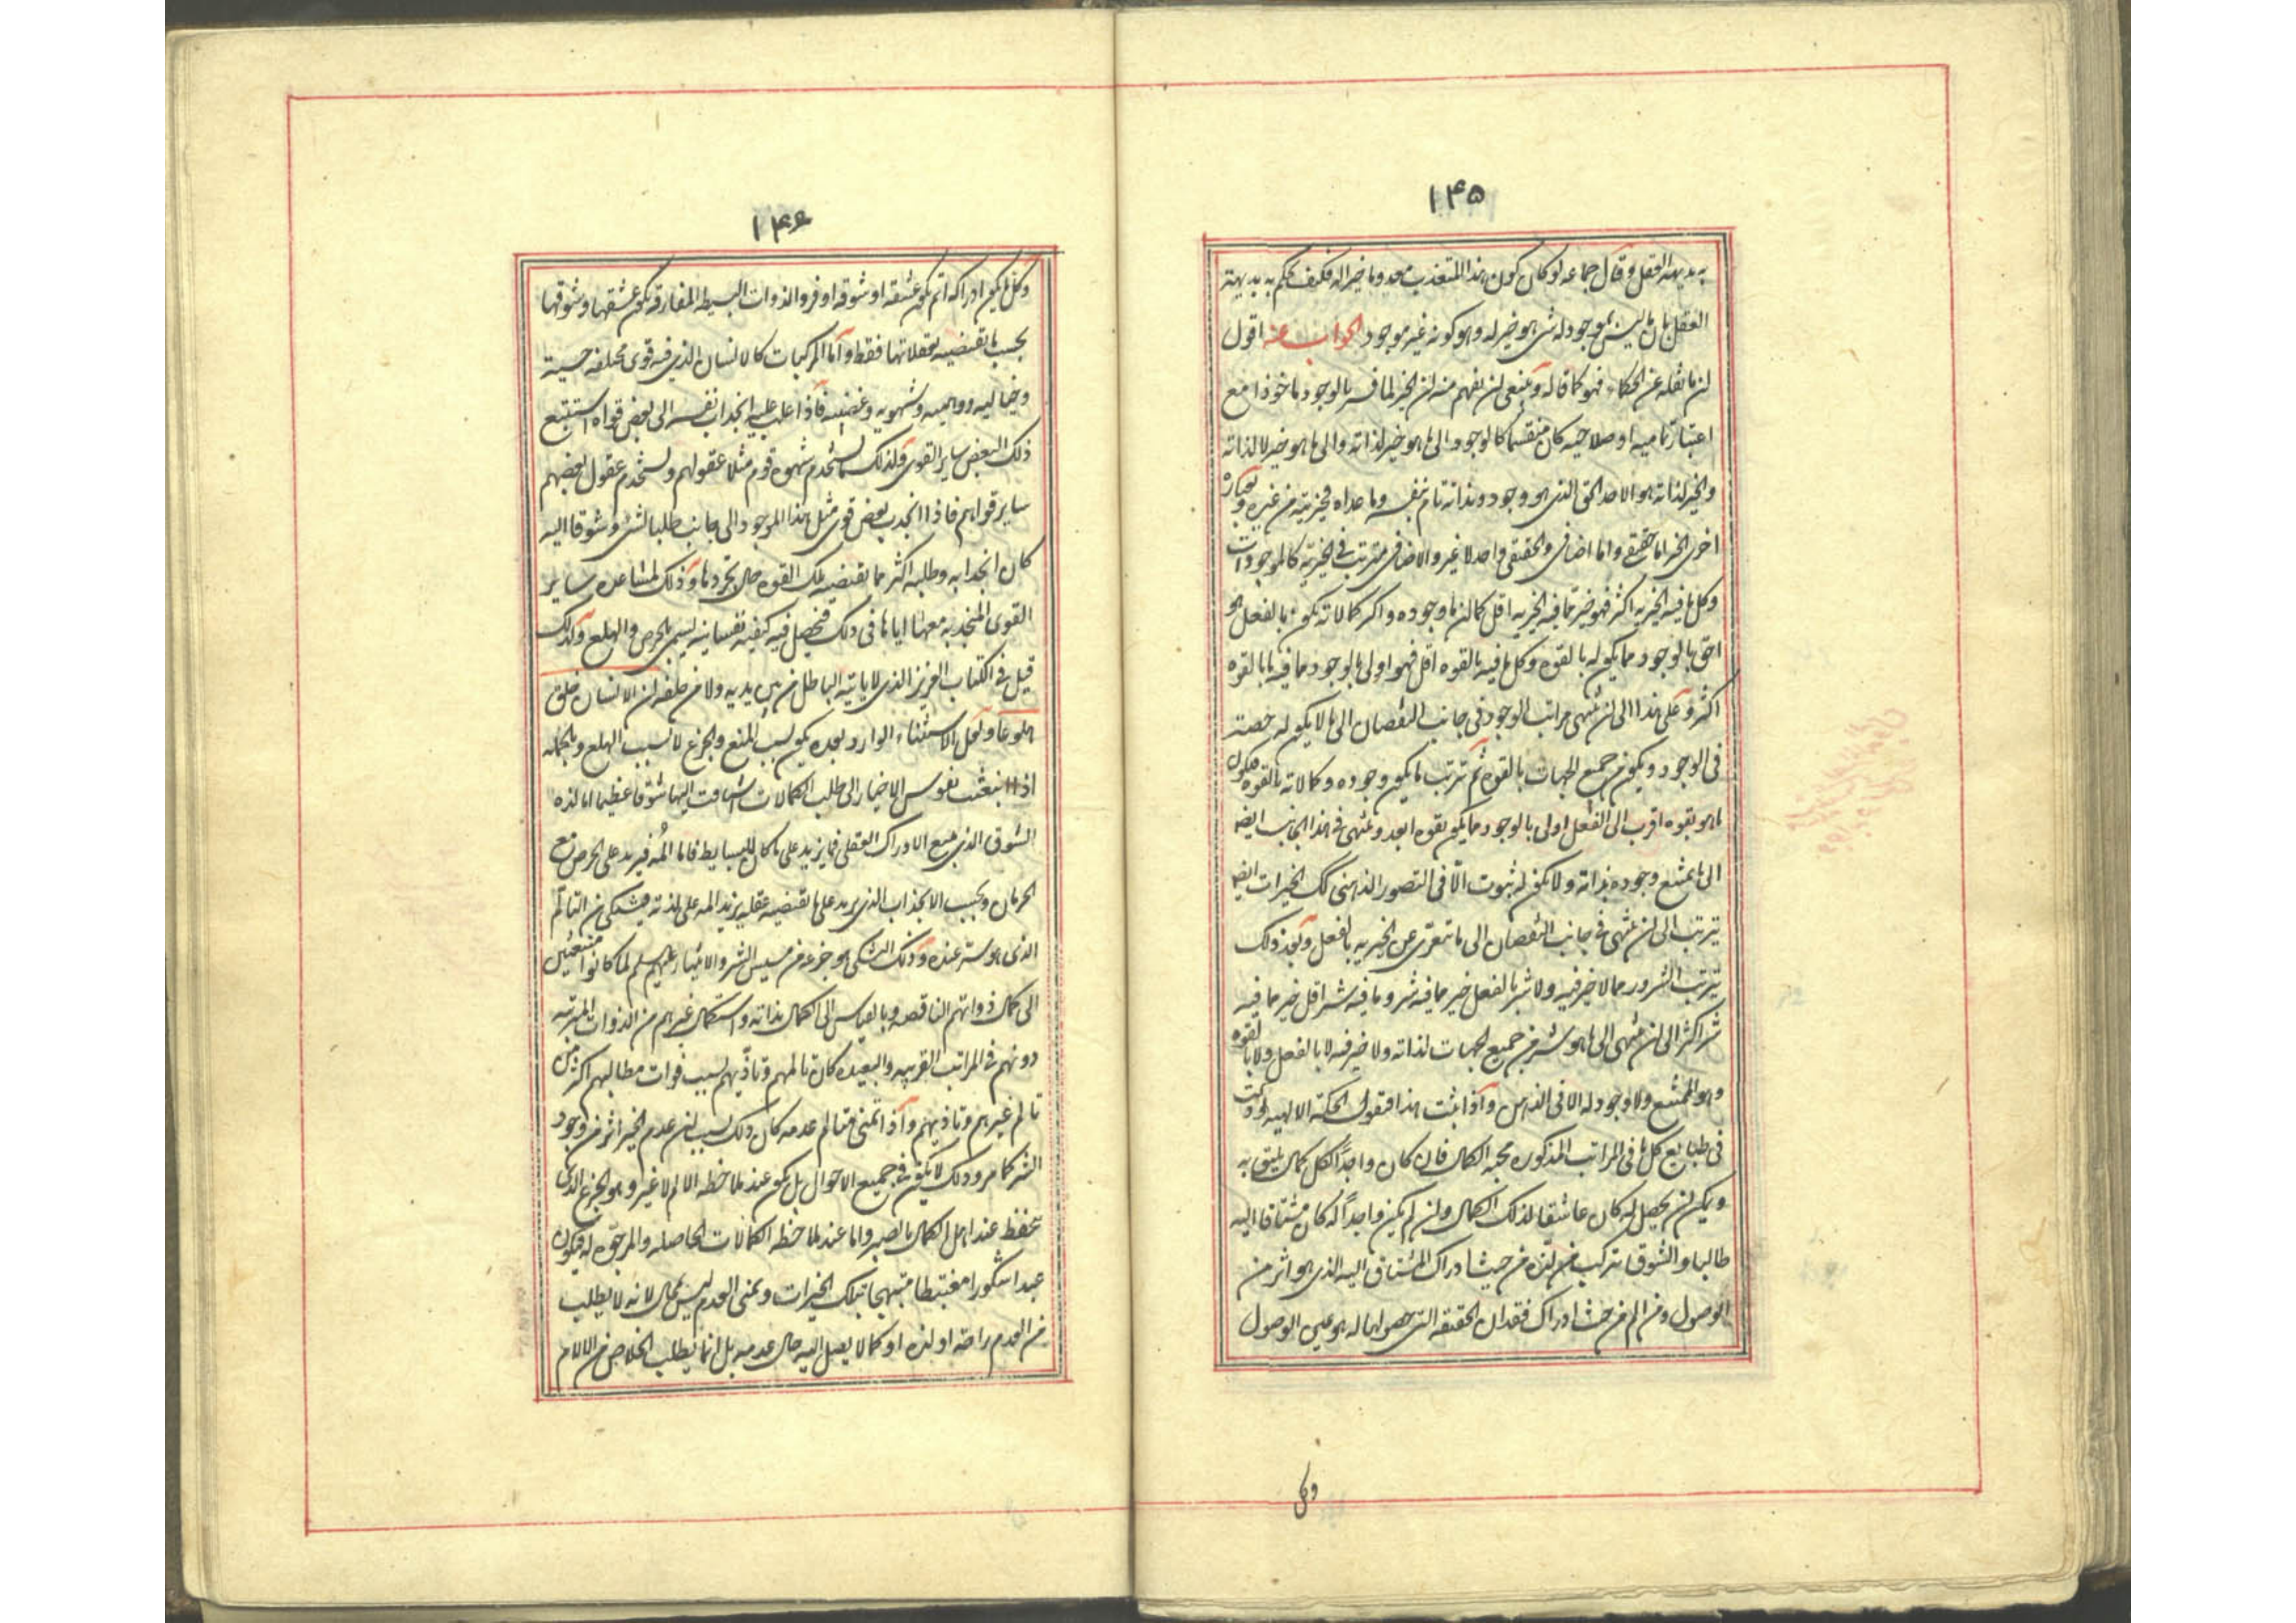 ١۴۵
بديهة العقل وقال جماعه لو كان كون هذا المتعذب معدوما خيرا له فكيف يحكم به بديهة
العقل بان ما ليس بموجود له شئ هو خير له وهو كونه غير موجود الجواب عنه اقول
ان ما نقله عن الحكماء فهو كما قاله وينبغى ان يفهم منه ان الخير لما فسر بالوجود ماخوذا مع
اعتبار تماميه او صلاحيه كان منقسما كالوجود الى ما هو خير لذاته والى ما هو خير لا لذاته
والخير لذاته هو الاحد الحق الذى هو وجود وبذاته تام بنفسه وما عداه فخيريته من غيره وبعباره
اخرى الخير اما حقيقى واما اضافى والحقيقى واحد لا غير والاضافى مترتب فى الخيريه كالموجودات
وكل ما فيه الخيريه اكثر فهو خير مما فيه الخيريه اقل كما ان ما وجوده واكثر كمالاته يكون بالفعل هو
احق بالوجود مما يكون له بالقوه وكل ما فيه بالقوه اقل فهو اولى بالوجود مما فيه ما بالقوه
اكثر وعلى هذا الى ان ينتهى مراتب الوجود فى جانب النقصان الى ما لا يكون له حصة
فى الوجود ويكون من جميع الجهات بالقوه ثم يترتب ما يكون وجوده وكمالاته بالقوه فيكون
ما هو بقوه اقرب الى الفعل اولى بالوجود مما يكون بقوه ابعد وينتهى فى هذا الجانب ايضه
الى ما يمتنع وجوده بذاته ولا يكون له ثبوت الّا فى التصور الذهنى كك الخيرات ايضه
يترتب الى ان ينتهى فى جانب النقصان الى ما يتعرّى عن الخيريه بالفعل وبعد ذلك
يترتب الشرور مما لا خير فيه ولا شر بالفعل خير مما فيه شر وما فيه شر اقل خير مما فيه
شر اكثر الى ان ينتهى الى ما هو شر من جميع الجهات لذاته ولا خير فيه لا بالفعل ولا بالقوه
وهو الممتنع ولا وجود له الا فى الذهن واذا ثبت هذا فنقول الحكمة الالهيه
فى طبايع كل ما فى المراتب المذكوره محبة الكمال فان كان واجداً لكل كمال يليق به
ويمكن ان يحصل له كان عاشقا لذلك الكمال وان لم يكن واجداً له كان مشتاقا اليه
طالبا والشوق يتركب من لذّه من حيث ادراك المشتاق اليه الذى هو اثر من
الوصول ومن الم من حيث ادراك فقدان الحقيقه التى حصولها له هو عين الوصول
وكل
١۴۶
وكل ما يكون ادراكه اتم يكون عشقه او شوقه اوفر والذوات البسيطه المفارقه يكون عشقها وشوقها
بحسب ما يقتضيه تعقلاتها فقط واما المركبات كالانسان الذى فيه قوى مختلفه حسية
وخياليه ووهميه وشهويه وغضبيه فاذا غلب عليه انجذاب نفسه الى بعض قواه استتبع
ذلك البعض ساير القوى ولذلك يستخدم شهوه قوم مثلا عقولهم ويستخدم عقول بعضهم
ساير قواهم فاذا انجذب بعض قوى مثل هذا الموجود الى جانب طلبا لشئ وشوقا اليه
كان انجذابه وطلبه اكثر مما يقتضيه تلك القوه حال تجردها وذلك لمشاعره ساير
القوى المنجذبه معها اياها فى ذلك فيحصل فيه كيفيه نفسانيه يسمى بالحرص والهلع ولذلك
قيل فى الكتاب العزيز الذى لا ياتيه الباطل من بين يديه ولا من خلفه ان الانسان خلق
هلوعا ولعل الاستثناء الوارد بعده يكون بسبب المنع والجزع لا بسبب الهلع وبالجمله
اذا انبعثت نفوس الاخيار الى طلب الكمالات اشتاقت اليها شوقا عظيما اما لذه
الشوق الذى يتبع الادراك العقلى فما يزيد على ما كان للبسايط فاما المه فيزيد على الحرص مع
الحرمان وبحسب الانجذاب الذى يزيد على ما يقتضيه عقله يزيد المه على لذته فيشتكى من التالّم
الذى هو شر عنده وذلك التشكى هو جزعه من مسيس الشر والانبياء عليهم سلم لما كانوا منبعثين
الى كمال ذواتهم الناقصه وبالقياس الى الكمال بذاته واستكمال غيرهم من الذوات المترتبه
دونهم فى المراتب القريبه والبعيده كان تالمهم وتاذّيهم بسبب فوات مطالبهم اكثر من
تالم غيرهم وتاذيهم واذا تمنى متالم عدمه كان ذلك بسبب ان عدم الخير اثر من وجود
الشر كما مر وذلك لا يكون فى جميع الاحوال بل يكون عند ملاحظه الالم لا غير وهو الجزع الذى
يحفظ عند اهل الكمال بالصبر واما عند ملاحظه الكمالات الحاصله والمرجوّه له فيكون
عبدا شكورا مغتبطا مبتهجا بتلك الخيرات وتمنى العدم ليس بمحال لانه لا يطلب
من العدم راحة او لذه او كمالا يصل اليه حال عدمه بل انما يطلب الخلاص من الالام